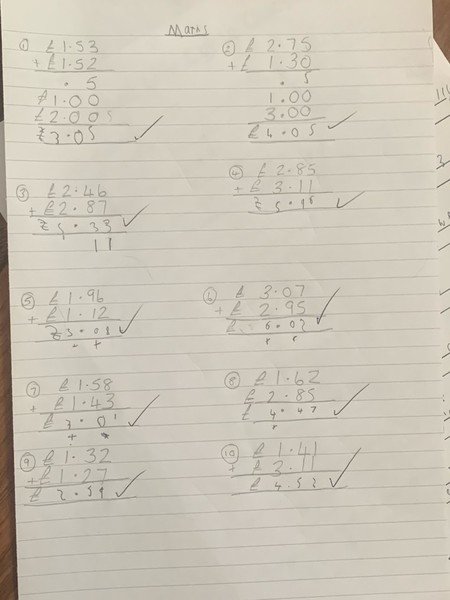 Maths
① £1.53
+ £1.52
.5
£1.00
£2.005
£3.05 ✓
② £2.75
+ £1.30
.5
1.00
3.00
£4.05 ✓
③ £2.46
+ £2.87
£5.33 ✓
11
④ £2.85
+ £3.11
£5.96 ✓
⑤ £1.96
+ £1.12
£3.08 ✓
⑥ £3.07
+ £2.95
£6.02 ✓
⑦ £1.58
+ £1.43
£3.01 ✓
⑧ £1.62
£2.85
£4.47 ✓
⑨ £1.32
+ £1.27
£2.59 ✓
⑩ £1.41
+ £3.11
£4.52 ✓